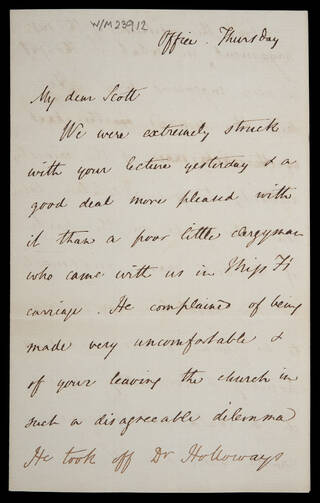 W/M23912
Office. Thursday
My dear Scott
We were extremely struck
with your lecture yesterday & a
good deal more pleased with
it than a poor little clergyman
who came with us in Miss H's
carriage. He complained of being
made very uncomfortable &
of your leaving the church in
such a disagreeable dilemma
He took off Dr Holloways